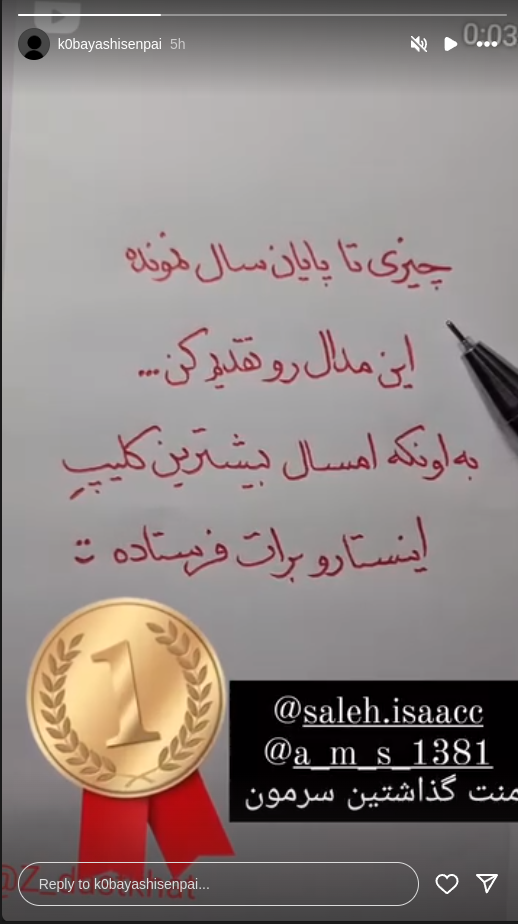 k0bayashisenpai 5h
0:03
چیزی تا پایان سال نمونده
این مدال رو تقدیم کن...
به اونکه امسال بیشترین کلیپِ
اینستا رو برات فرستاده
1
@saleh.isaacc
@a_m_s_1381
منت گذاشتین سرمون
Reply to k0bayashisenpai...